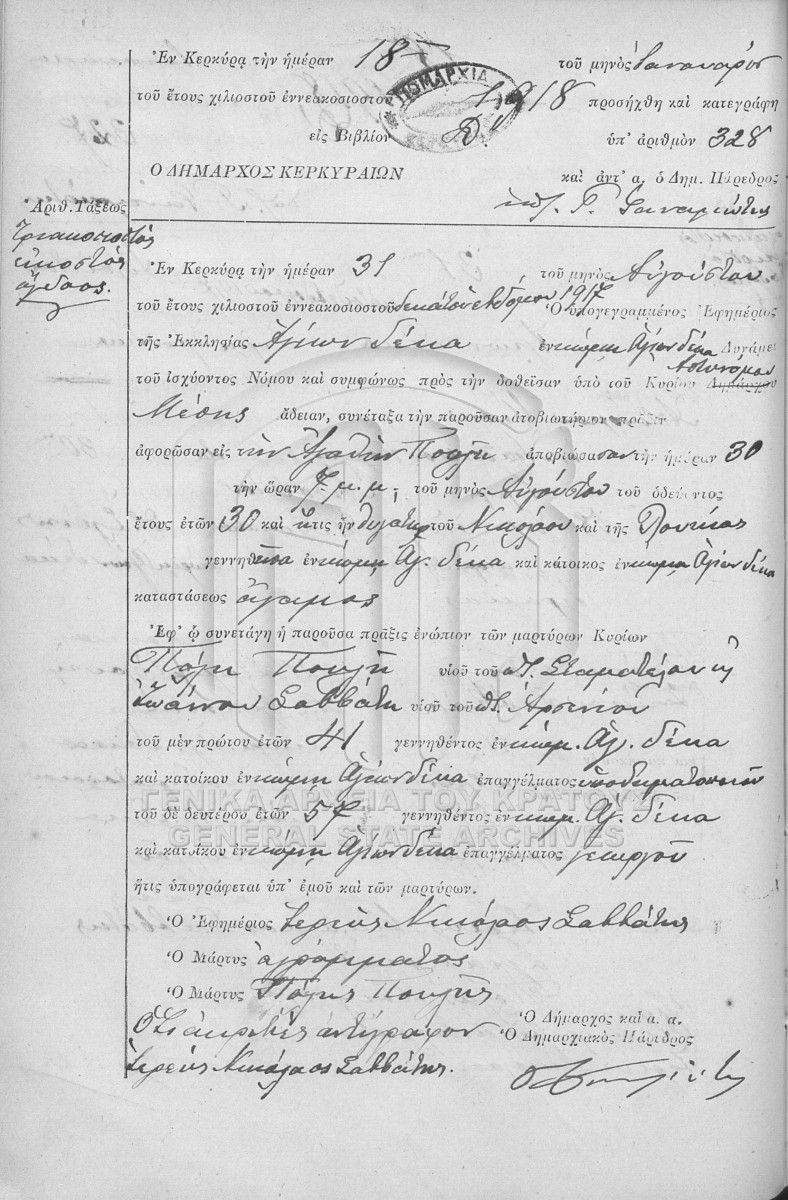 Ἐν Κερκύρᾳ τὴν ἡμέραν 18 τοῦ μηνὸς Ἰανουαρίου
τοῦ ἔτους χιλιοστοῦ ἐννεακοσιοστοῦ 1918 προσήχθη καὶ κατεγράφη
ΔΗΜΑΡΧΙΑ
εἰς Βιβλίον Β' ὑπ' ἀριθμὸν 328
Ο ΔΗΜΑΡΧΟΣ ΚΕΡΚΥΡΑΙΩΝ καὶ ἀντ' α. ὁ Δημ. Πάρεδρος
Ἀριθ. Τάξεως
τριακοσιοστὸς
εἰκοστὸς
ὄγδοος.
Ἐν Κερκύρᾳ τὴν ἡμέραν 31 τοῦ μηνὸς Αὐγούστου
τοῦ ἔτους χιλιοστοῦ ἐννεακοσιοστοῦ δεκάτου ἑβδόμου 1917 Ὁ ὑπογεγραμμένος Ἐφημέριος
τῆς Ἐκκλησίας Ἁγίων Δέκα ἐν κώμῃ Ἁγίων Δέκα Δυνάμει
τοῦ ἰσχύοντος Νόμου καὶ συμφώνως πρὸς τὴν δοθεῖσαν ὑπὸ τοῦ Κυρίου Δημάρχου Ἀστυνόμου
Μέσης ἄδειαν, συνέταξα τὴν παροῦσαν ἀποβιωτήριον πρᾶξιν
ἀφορῶσαν εἰς τὴν Ἀγαθὴν Πουλῆ ἀποβιώσασαν τὴν ἡμέραν 30
τὴν ὥραν 7 μ.μ. τοῦ μηνὸς Αὐγούστου τοῦ ὁδεύοντος
ἔτους ἐτῶν 30 καὶ ἥτις ἦν θυγάτηρ τοῦ Νικολάου καὶ τῆς Λουκίας
γεννηθεῖσα ἐν κώμῃ Ἁγ. Δέκα καὶ κάτοικος ἐν κώμῃ Ἁγίων Δέκα
καταστάσεως ἄγαμος
Ἐφ' ᾧ συνετάγη ἡ παροῦσα πρᾶξις ἐνώπιον τῶν μαρτύρων Κυρίων
Πουλῆ υἱοῦ τοῦ ποτ. Σταματέλου ἢ
Ἰωάννου Σαββάτη υἱοῦ τοῦ ποτ. Ἀρσενίου
τοῦ μὲν πρώτου ἐτῶν 41 γεννηθέντος ἐν κώμ. Ἁγ. Δέκα
καὶ κατοίκου ἐν κώμῃ Ἁγίων Δέκα ἐπαγγέλματος ὑποδηματοποιοῦ
ΓΕΝΙΚΑ ΑΡΧΕΙΑ ΤΟΥ ΚΡΑΤΟΥΣ
τοῦ δὲ δευτέρου ἐτῶν 57 γεννηθέντος ἐν κώμῃ Ἁγ. Δέκα
GENERAL STATE ARCHIVES
καὶ κατοίκου ἐν κώμῃ Ἁγίων Δέκα ἐπαγγέλματος γεωργοῦ
ἥτις ὑπογράφεται ὑπ' ἐμοῦ καὶ τῶν μαρτύρων.
Ὁ Ἐφημέριος Ἱερεὺς Νικόλαος Σαββάτης
Ὁ Μάρτυς ἀγράμματος
Ὁ Μάρτυς Πουλῆς
ἀντίγραφον
Ὁ Δήμαρχος καὶ α. α.
Ὁ Δημαρχιακὸς Πάρεδρος
Ἱερεὺς Νικόλαος Σαββάτης.